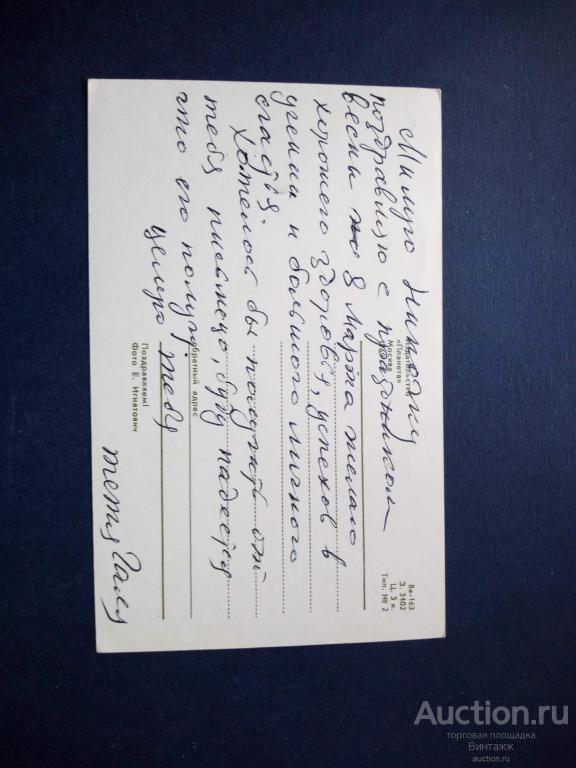 Милую Ниночку
поздравляю с праздником
весны 8 Марта желаю
хорошего здоровья, успехов в
учении и большого личного
счастья.
Хотелось бы получить от
тебя письмецо, буду надеется
что его получу,
целую тебя
тетя Галя
Издательство
«Планета»
Москва
Обратный адрес
Поздравляем!
Фото Е. Игнатович
8в-163
З. 3402
Ц. 3 к.
Тип. № 2
Auction.ru
торговая площадка
Винтажж
auction.ru